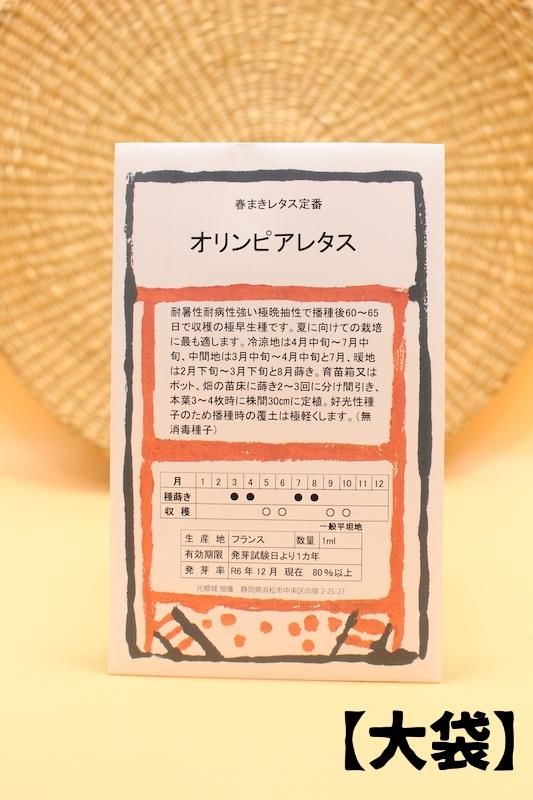 春まきレタス定番
オリンピアレタス
耐暑性耐病性強い極晩抽性で播種後60～65
日で収穫の極早生種です。夏に向けての栽培
に最も適します。冷涼地は4月中旬～7月中
旬、中間地は3月中旬～4月中旬と7月、暖地
は2月下旬～3月下旬と8月蒔き。育苗箱又は
ポット、畑の苗床に蒔き2～3回に分け間引き、
本葉3～4枚時に株間30㎝に定植。好光性種
子のため播種時の覆土は極軽くします。（無
消毒種子）
月 1 2 3 4 5 6 7 8 9 10 11 12
種蒔き ● ● ● ●
収穫 ○ ○ ○ ○
一般平坦地
生産地 フランス 数量 1ml
有効期限 発芽試験日より1カ年
発芽率 R6年12月 現在 80%以上
光郷城 畑懐 静岡県浜松市中央区向宿2-25-27
【大袋】